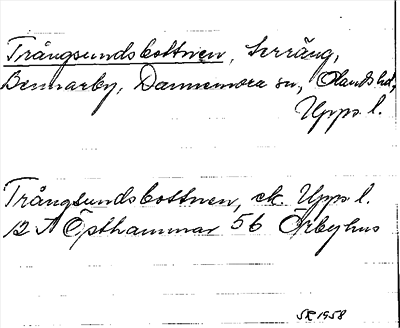 Trångsundsbottnen, terräng,
Bennarby, Dannemora sn, Olands hd,
Upps. l.
Trångsundsbottnen, ek. Upps l.
12 A Östhammar 56 Örbyhus
SR 1958